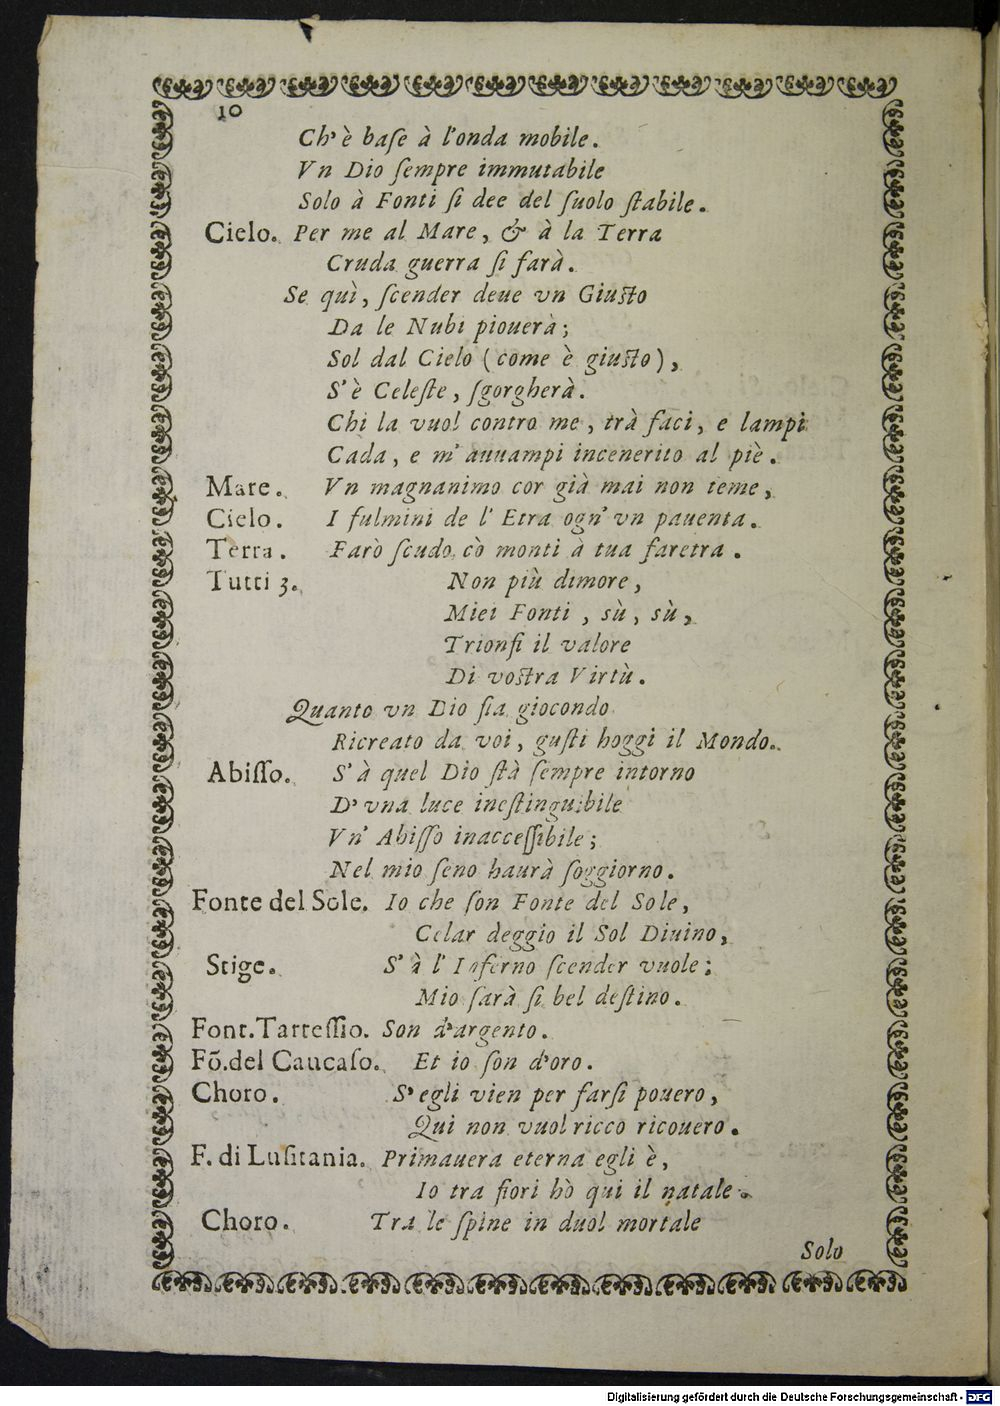 10
Ch'è baſe à l'onda mobile.
Vn Dio ſempre immutabile
Solo à Fonti ſi dee del ſuolo ſtabile.
Cielo. Per me al Mare, & à la Terra
Cruda guerra ſi farà.
Se quì, ſcender deue vn Giuſto
Da le Nubi piouerà;
Sol dal Cielo (come è giuſto),
S'è Celeſte, ſgorgherà.
Chi la vuol contro me, trà faci, e lampi
Cada, e m'auuampi incenerito al piè.
Mare. Vn magnanimo cor già mai non teme,
Cielo. I fulmini de l'Etra ogn'vn pauenta.
Terra. Farò ſcudo cò monti à tua faretra.
Tutti 3. Non più dimore,
Miei Fonti, sù, sù,
Trionfi il valore
Di voſtra Virtù.
Quanto vn Dio ſia giocondo
Ricreato da voi, guſti hoggi il Mondo.
Abiſſo. S'à quel Dio ſtà ſempre intorno
D'vna luce ineſtinguibile
Vn' Abiſſo inacceſſibile;
Nel mio ſeno haurà ſoggiorno.
Fonte del Sole. Io che ſon Fonte del Sole,
Celar deggio il Sol Diuino,
Stige. S'à l'Inferno ſcender vuole;
Mio ſarà ſi bel deſtino.
Font. Tarteſſio. Son d'argento.
Fõ. del Caucaſo. Et io ſon d'oro.
Choro. S'egli vien per farſi pouero,
Qui non vuol ricco ricouero.
F. di Luſitania. Primauera eterna egli è,
Io tra fiori hò qui il natale.
Choro. Tra le ſpine in duol mortale
Solo
Digitalisierung gefördert durch die Deutsche Forschungsgemeinschaft - DFG